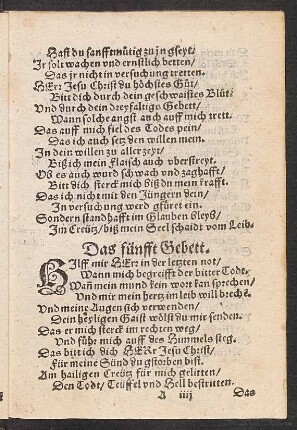 Hast du sanfftmütig zu jn gseyt/
Ir solt wachen vnd ernstlich betten/
Das jr nicht in versuchung tretten.
HErr Jesu Christ du höchstes Gůt/
Bitt dich durch dein geschwaistes Blůt/
Vnd durch dein dreyfaltigs Gebett/
Wann solche angst auch auff mich trett.
Das auff mich fiel des Todes pein/
Das ich auch setz den willen mein.
In dein willen zu aller zeyt/
Biß ich mein flaisch auch vberstreyt.
Ob es auch wurd schwach vnd zaghafft/
Bitt dich sterck mich biß dn mein krafft.
Das ich nicht mit den Jüngern dein/
In versuchung werd gfüret ein.
Sondern standhafft im Glauben bleyb/
Im Creütz/ biß mein Seel schaidt vom Leib.
Das fünfft Gebett.
HIlff mir HErr in der letzten not/
Wann mich begreifft der bitter Todt/
Wañ mein mund kein wort kan sprechen/
Vnd mir mein hertz im leib will brechẽ.
Vnd meine Augen sich verwenden/
Dein heyligen Gaist wölst du mir senden.
Das er mich sterck im rechten weg/
Vnd führ mich auff des Himmels steg.
Das bitt ich dich HERr Jesu Christ/
Für meine Sünd du gstorben bist.
Am hailigen Creütz für mich gelitten/
Den Todt/ Teüffel vnd Hell bestritten.
A iiij Das